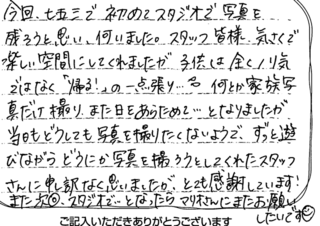 今回、七五三で初めてスタジオで写真を
撮ろうと思い、伺いました。スタッフ皆様、気さくで
楽しい空間にしてくれましたが、子供は全くノリ気
ではなく「帰る!」の一点張り…。何とか家族写
真だけ撮り、また日をあらためて…となりましたが
当日もどうしても写真を撮りたくないようで、ずっと遊
びながらどうにか写真を撮ろうとしてくれたスタッフ
さんに申し訳なく思いましたが、とても感謝しています!
また次回、スタジオで…となったらマリオさんにまたお願い
したいです☺
ご記入いただきありがとうございます